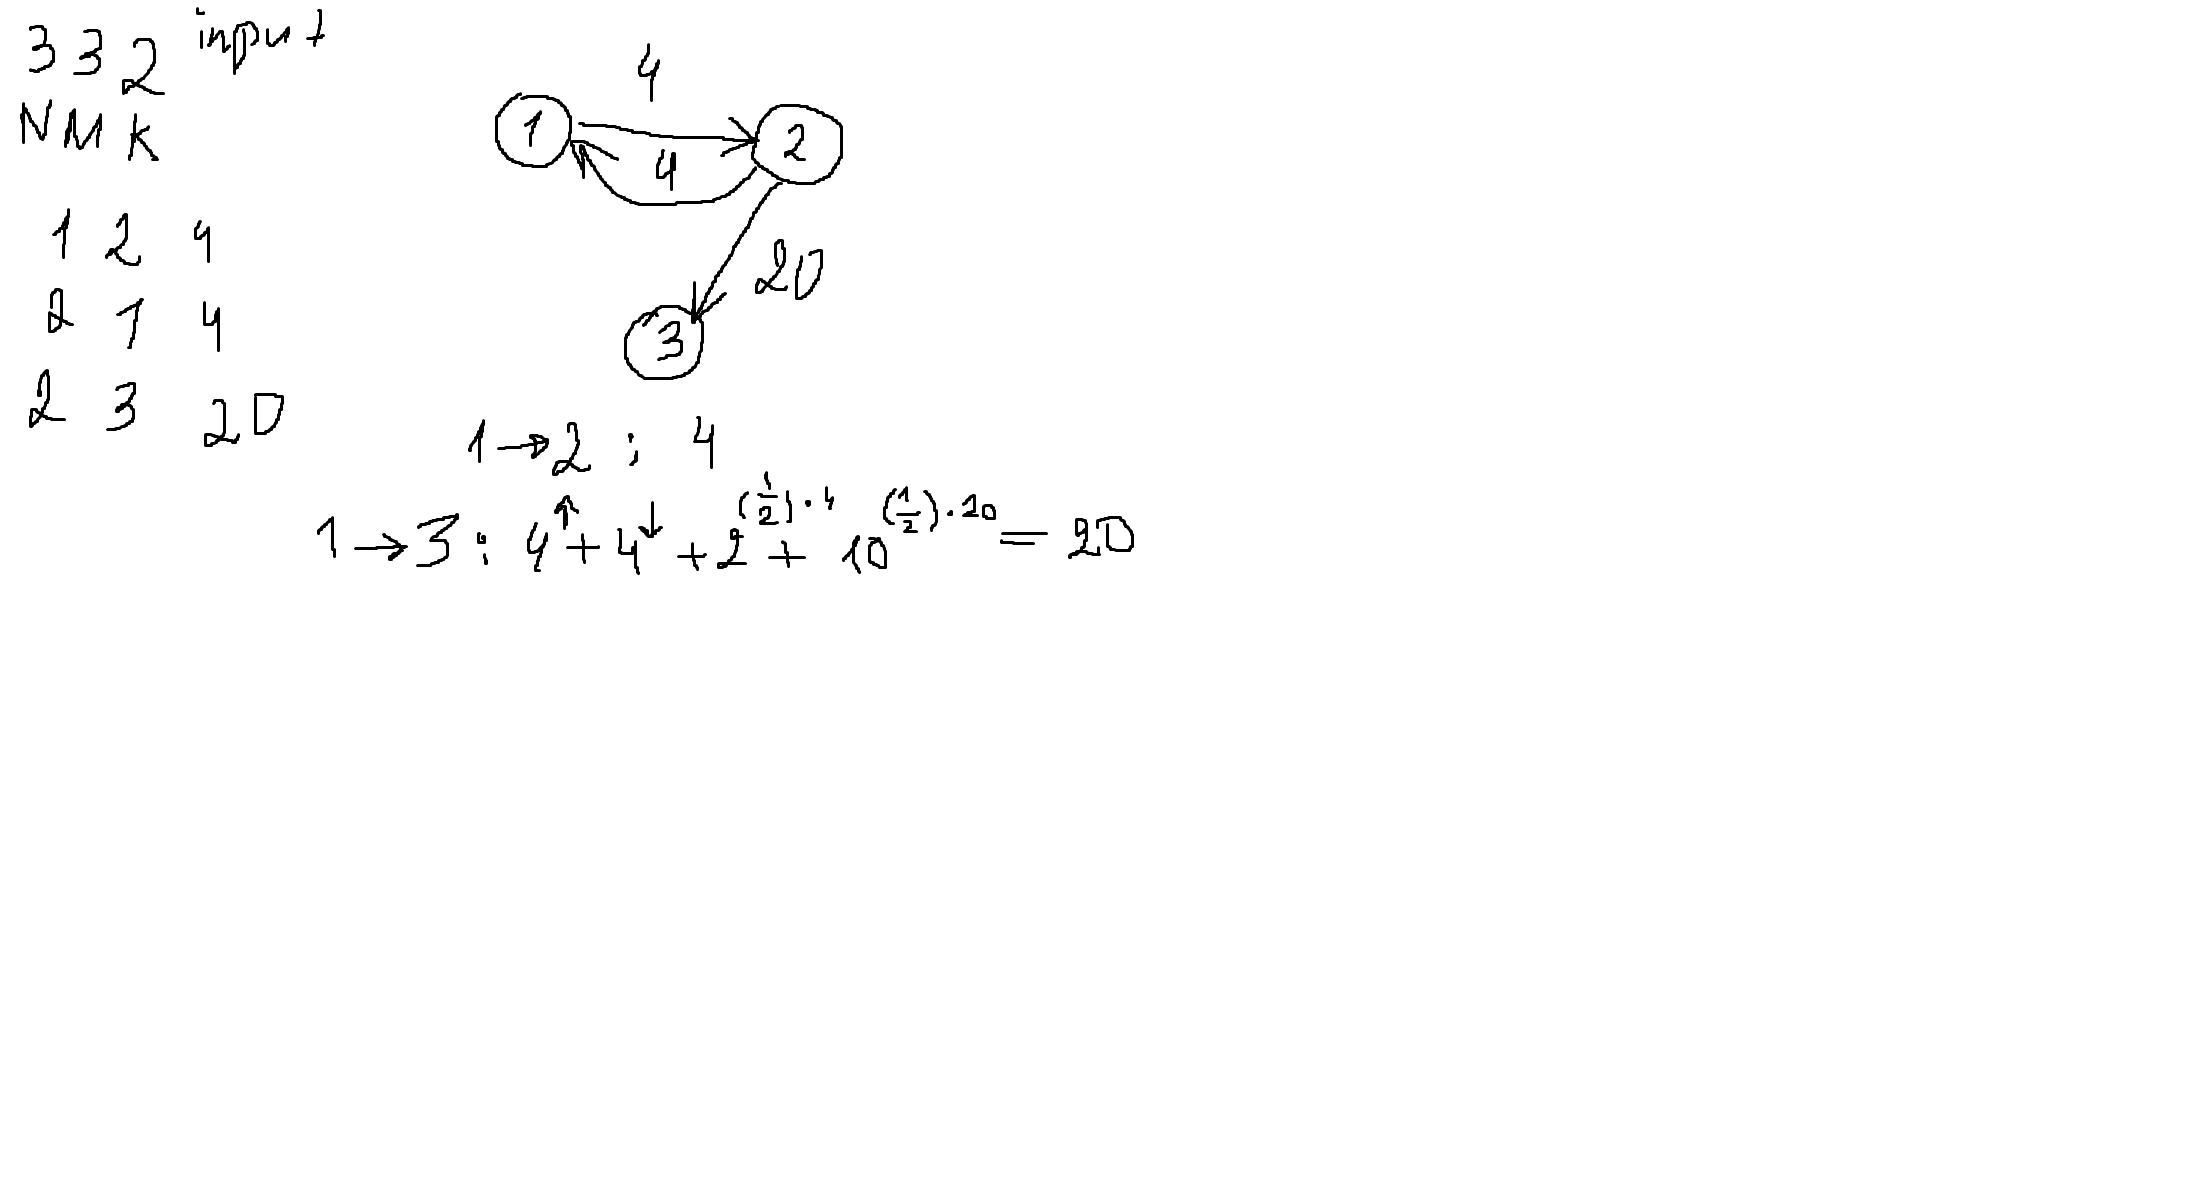 3 3 2 input
N M K
1 2 4
2 1 4
2 3 20
4
1
2
4
20
3
1 → 2 : 4
1 → 3 : 4↑ + 4↓ + 2^(1/2)·4 + 10^(1/2)·20 = 20